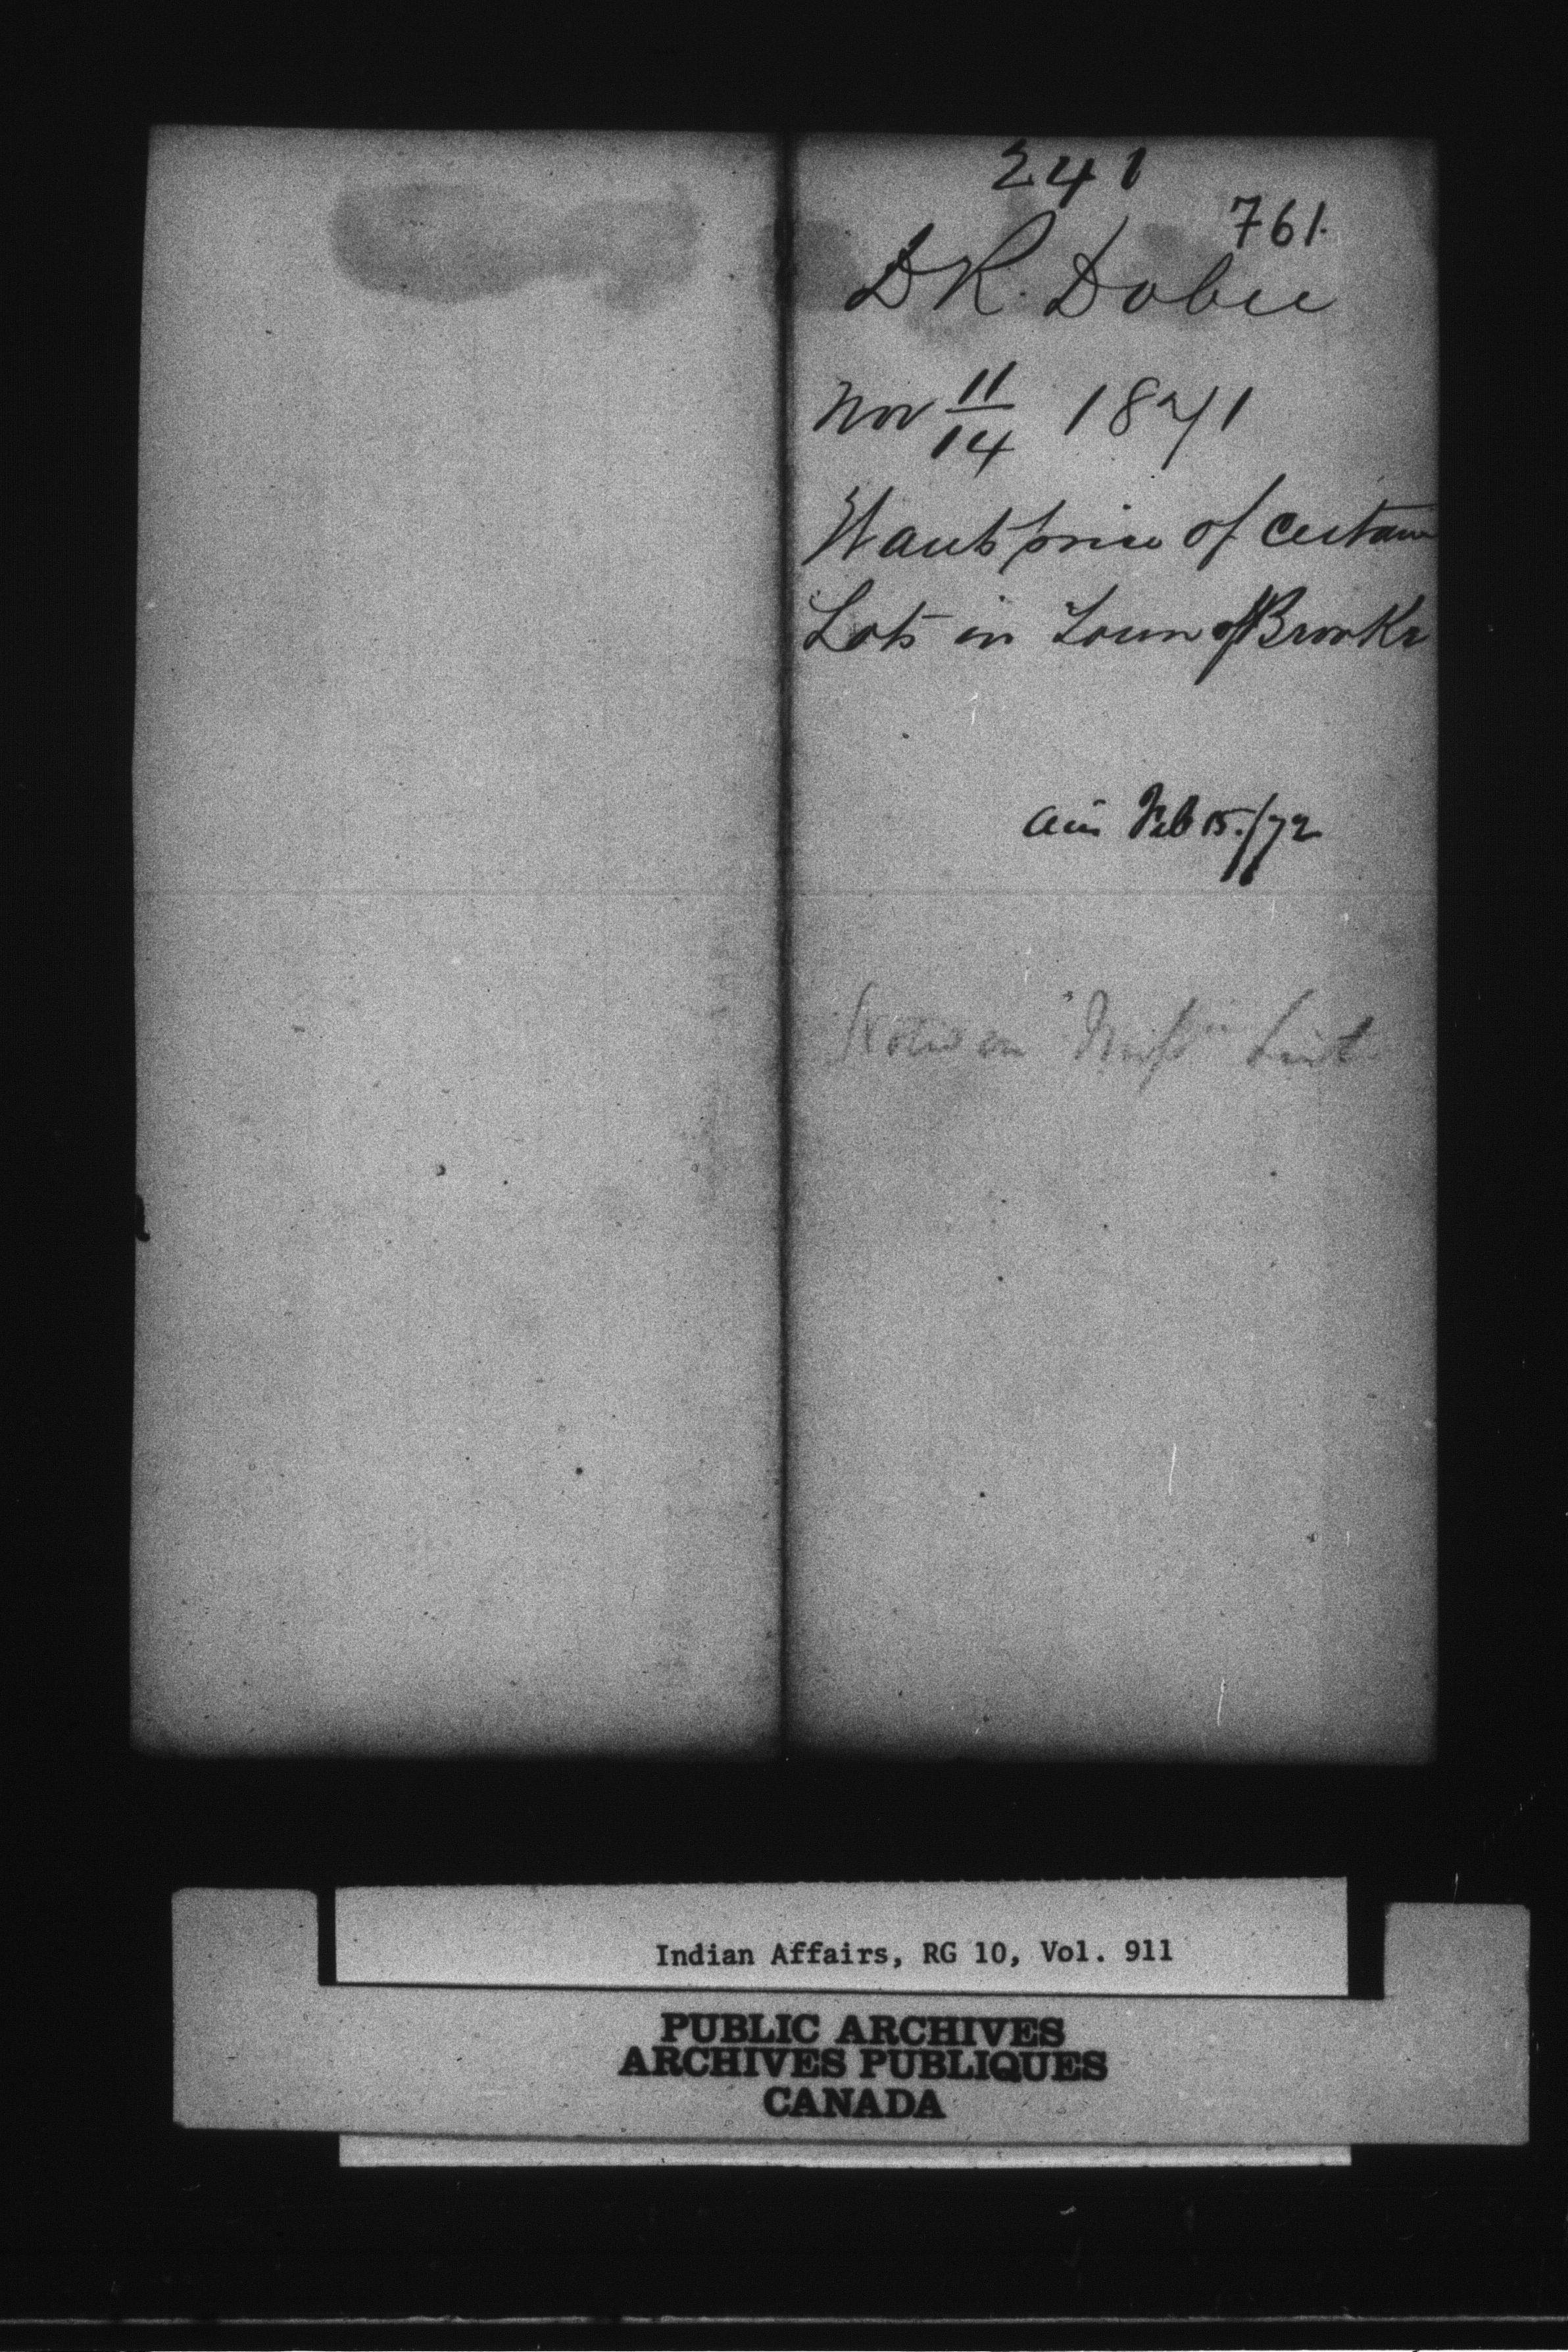 241
761.
D R. Dobie
Nov 11/14 1871
Wants price of certain
Lots in Town of Brooke
ans Feb 15./72
List
Indian Affairs, RG 10, Vol. 911
PUBLIC ARCHIVES
ARCHIVES PUBLIQUES
CANADA